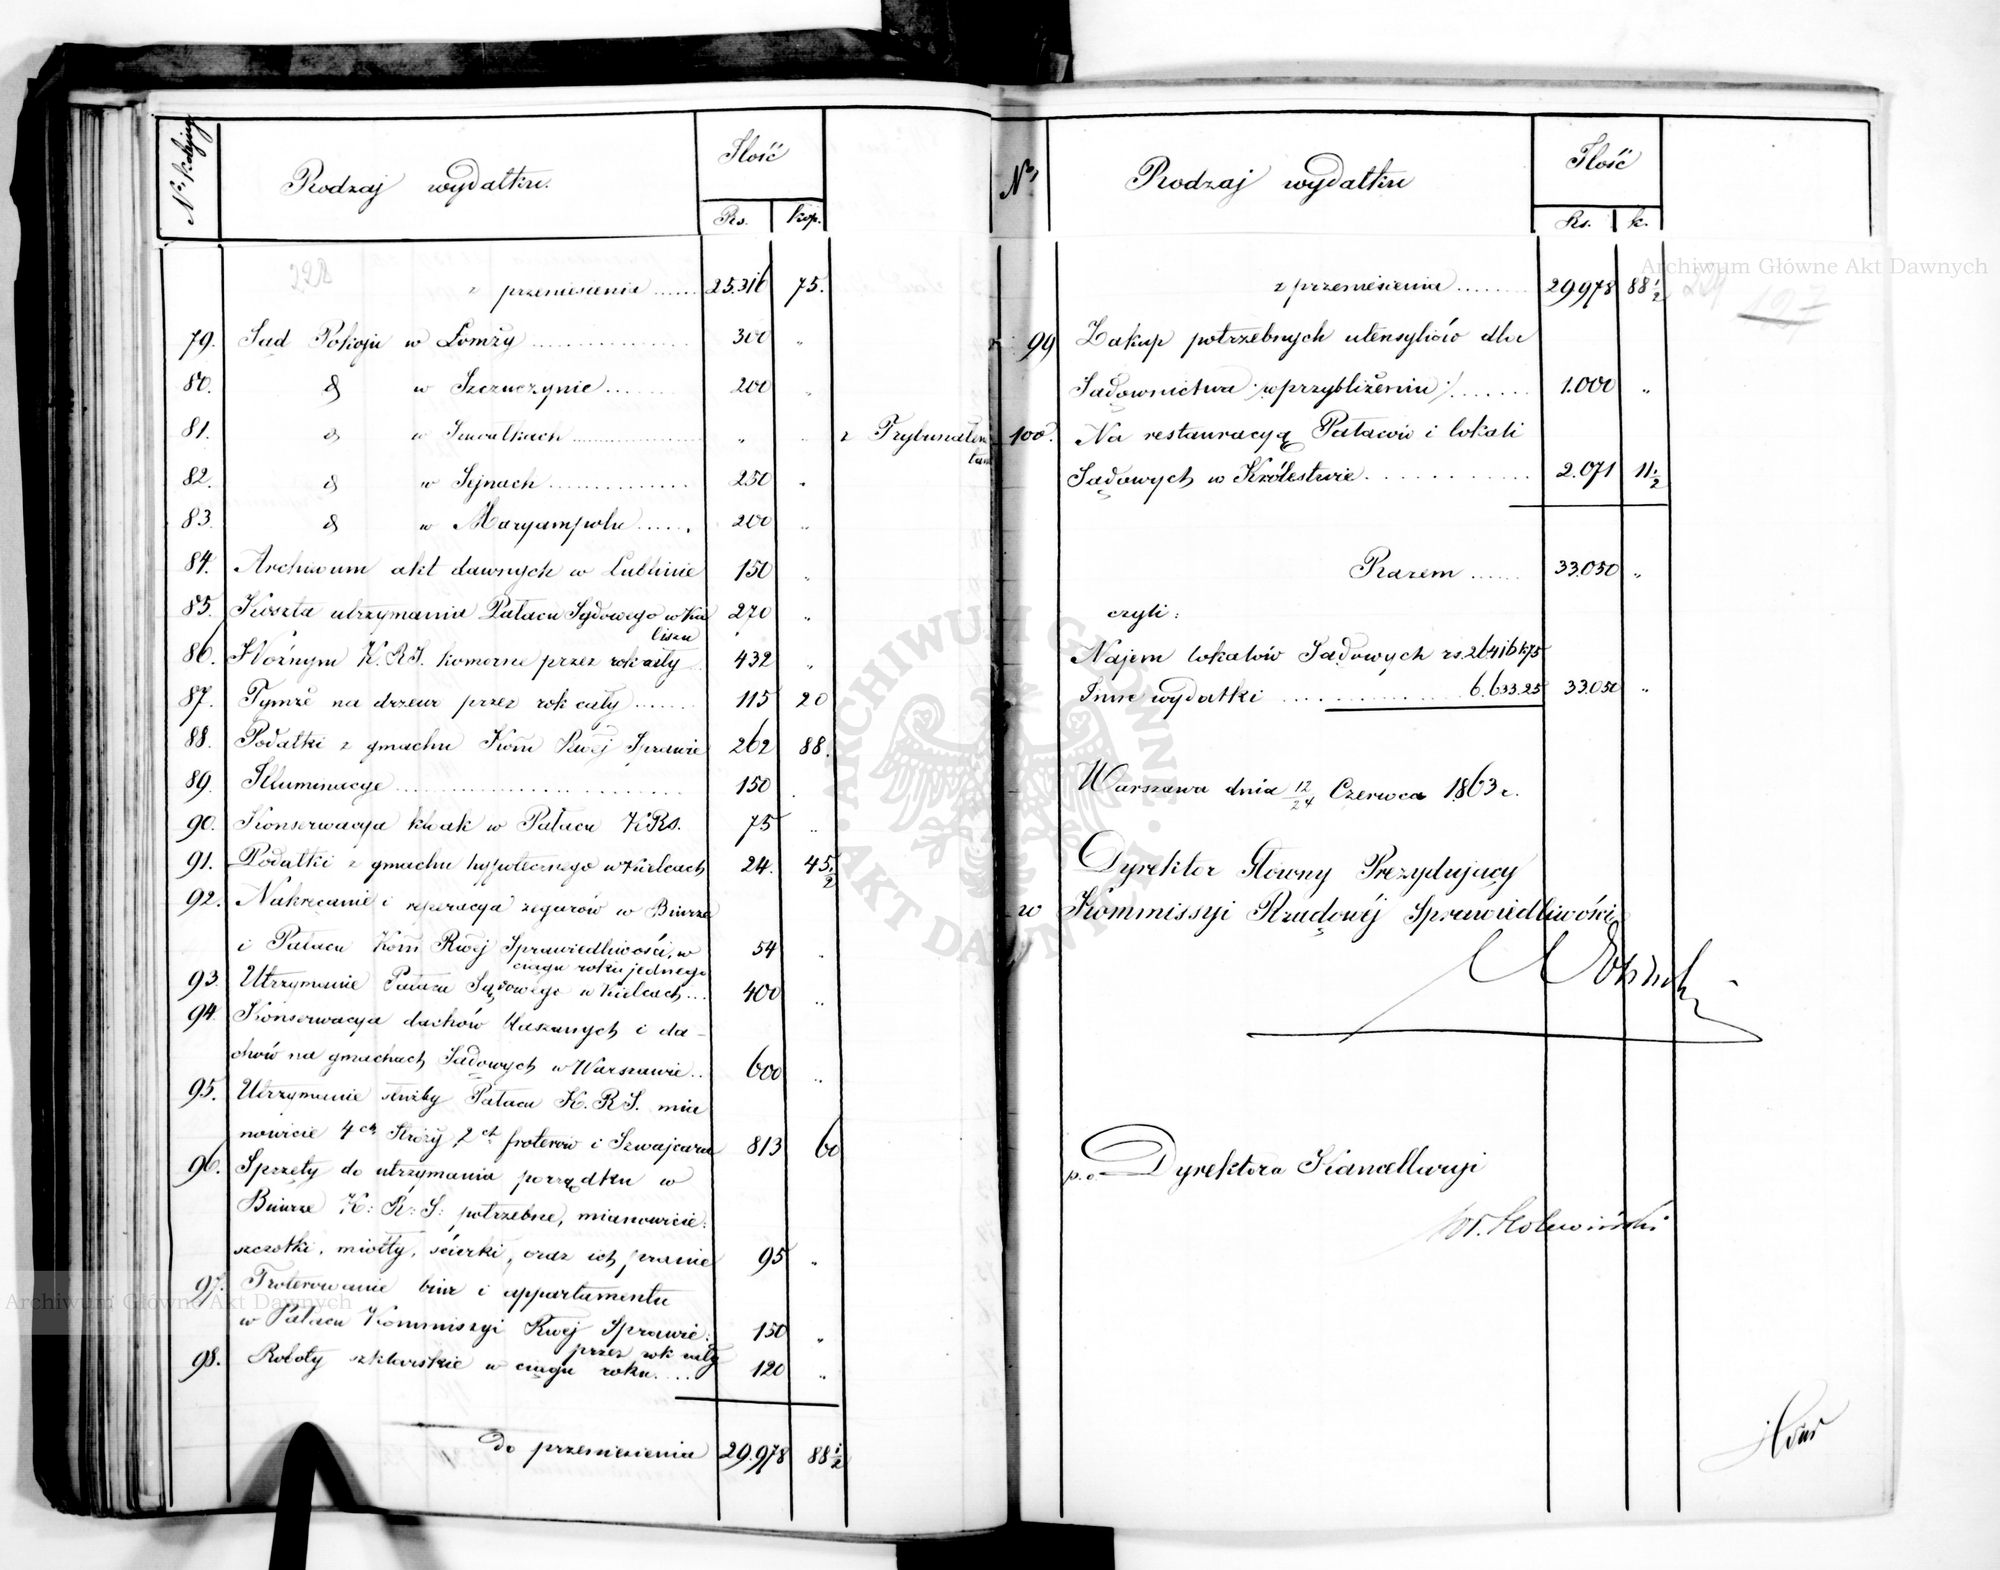 N° kolejny
Rodzaj wydatku.
Ilość
Rs. kop.
228
z przeniesienia ...... 25.316 75.
79. Sąd Pokoju w Łomży ................ 300 "
80. d° w Szczuczynie ....... 200 "
81. d° w Suwałkach ................ " " z Trybunałem
82. d° w Sejnach ............... 250 "
83. d° w Maryampolu ...... 200 "
84. Archiwum akt dawnych w Lublinie 150 "
85. Koszta utrzymania Pałacu Sądowego w Ka 270 "
liszu
86. Stoźnym K.R.S. komorne przez rok cały 432 "
87. Tymże na drzewo przez rok cały ....... 115 20
88. Podatki z gmachu Kom Rwéj Sprawie 262 88.
89. Illuminacye ............................ 150 .
90. Konserwacya klóak w Pałacu KRS. 75 "
91. Podatki z gmachu hypotecznego w Kielcach 24. 45½
92. Nakręcanie i reperacya zegarów w Biurze
i Pałacu Kom Rwéj Sprawiedliwości, w 54 "
ciągu roku jednego
93. Utrzymanie Pałacu Sądowego w Kielcach... 400 "
94. Konserwacya dachów blaszanych i da-
chów na gmachach Sądowych w Warszawie.. 600 "
95. Utrzymanie służby Pałacu K.R.S. mia
nowicie 4ch Stróży, 2ch froterów i Szwajcara 813 60
96. Sprzęty do utrzymania porządku w
Biurze K: R: S: potrzebne, mianowicie:
szczotki, miotły, ścierki, oraz ich pranie 95 "
97. Froterowanie biur i appartamentu
w Pałacu Kommissyi Rwéj Sprawie: 150 "
przez rok cały
98. Roboty szklarskie w ciągu roku.... 120 "
Do przeniesienia 29.978 88½
N°
Rodzaj wydatku
Ilość
Rs. k.
z przeniesienia ....... 29978 88½
197
99 Zakup potrzebnych utensyliów dla
Sądownictwa /:w przybliżeniu:/ ....... 1.000 "
100. Na restauracyą Pałaców i lokali
Sądowych w Królestwie ............ 2.071 11½
Razem ...... 33.050 "
czyli:
Najem lokalów Sądowych rs. 26416 k 75
Inne wydatki ............... 6.633.25 33.050 "
Warszawa dnia 12/24 Czerwca 1863 r.
Dyrektor Główny Prezydujący
w Kommissyi Rządowéj Sprawiedliwości
p.o. Dyrektora Kancellaryi
Archiwum Główne Akt Dawnych
Archiwum Główne Akt Dawnych
ARCHIWUM GŁÓWNE AKT DAWNYCH